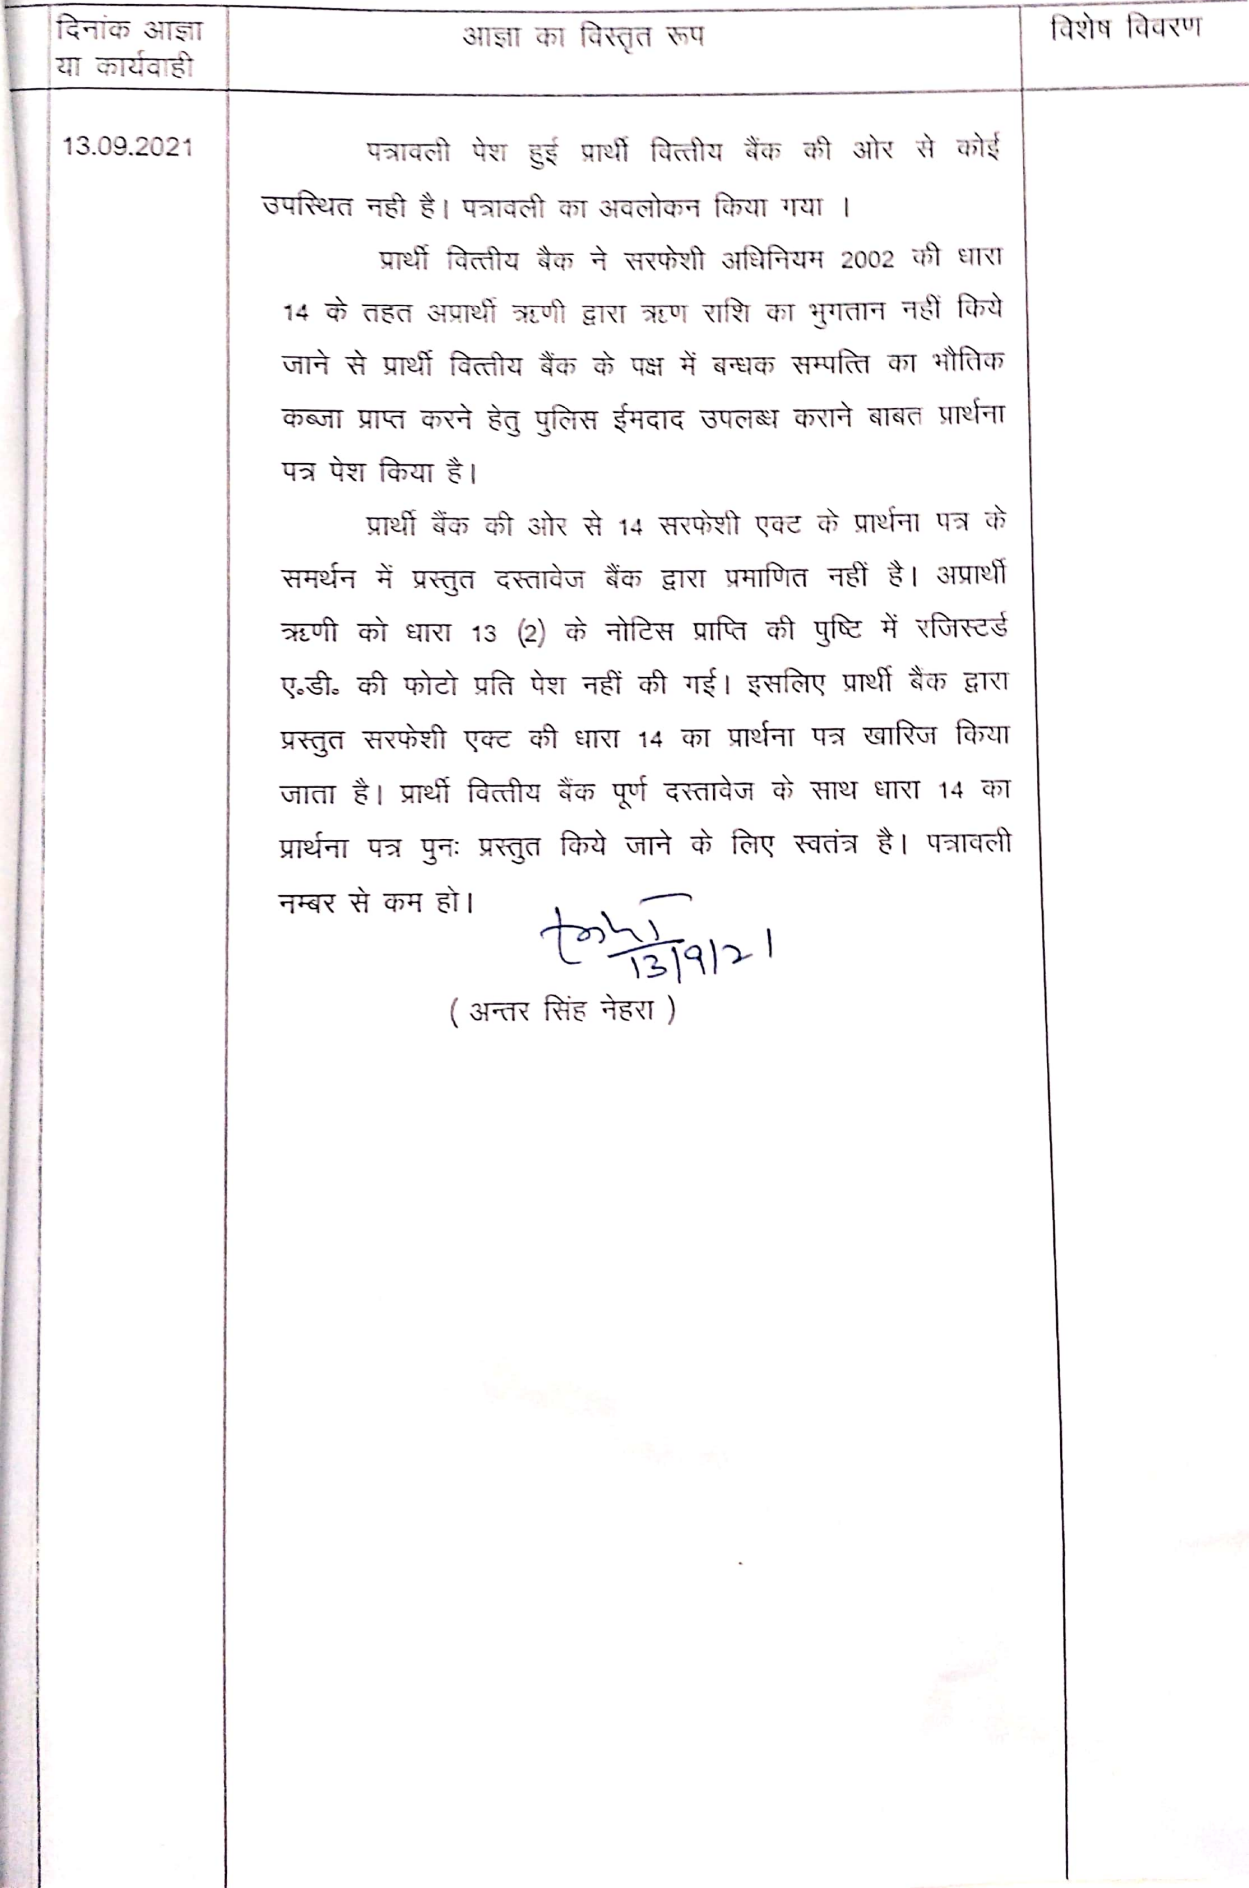 दिनांक आज्ञा
या कार्यवाही
आज्ञा का विस्तृत रूप
विशेष विवरण
13.09.2021
पत्रावली पेश हुई प्रार्थी वित्तीय बैंक की ओर से कोई
उपस्थित नही है। पत्रावली का अवलोकन किया गया ।
प्रार्थी वित्तीय बैक ने सरफेशी अधिनियम 2002 की धारा
14 के तहत अप्रार्थी ऋणी द्वारा ऋण राशि का भुगतान नहीं किये
जाने से प्रार्थी वित्तीय बैंक के पक्ष में बन्धक सम्पत्ति का भौतिक
कब्जा प्राप्त करने हेतु पुलिस ईमदाद उपलब्ध कराने बाबत प्रार्थना
पत्र पेश किया है।
प्रार्थी बैंक की ओर से 14 सरफेशी एक्ट के प्रार्थना पत्र के
समर्थन में प्रस्तुत दस्तावेज बैंक द्वारा प्रमाणित नहीं है। अप्रार्थी
ऋणी को धारा 13 (2) के नोटिस प्राप्ति की पुष्टि में रजिस्टर्ड
ए॰डी॰ की फोटो प्रति पेश नहीं की गई। इसलिए प्रार्थी बैंक द्वारा
प्रस्तुत सरफेशी एक्ट की धारा 14 का प्रार्थना पत्र खारिज किया
जाता है। प्रार्थी वित्तीय बैंक पूर्ण दस्तावेज के साथ धारा 14 का
प्रार्थना पत्र पुनः प्रस्तुत किये जाने के लिए स्वतंत्र है। पत्रावली
नम्बर से कम हो।
13/9/21
( अन्तर सिंह नेहरा )